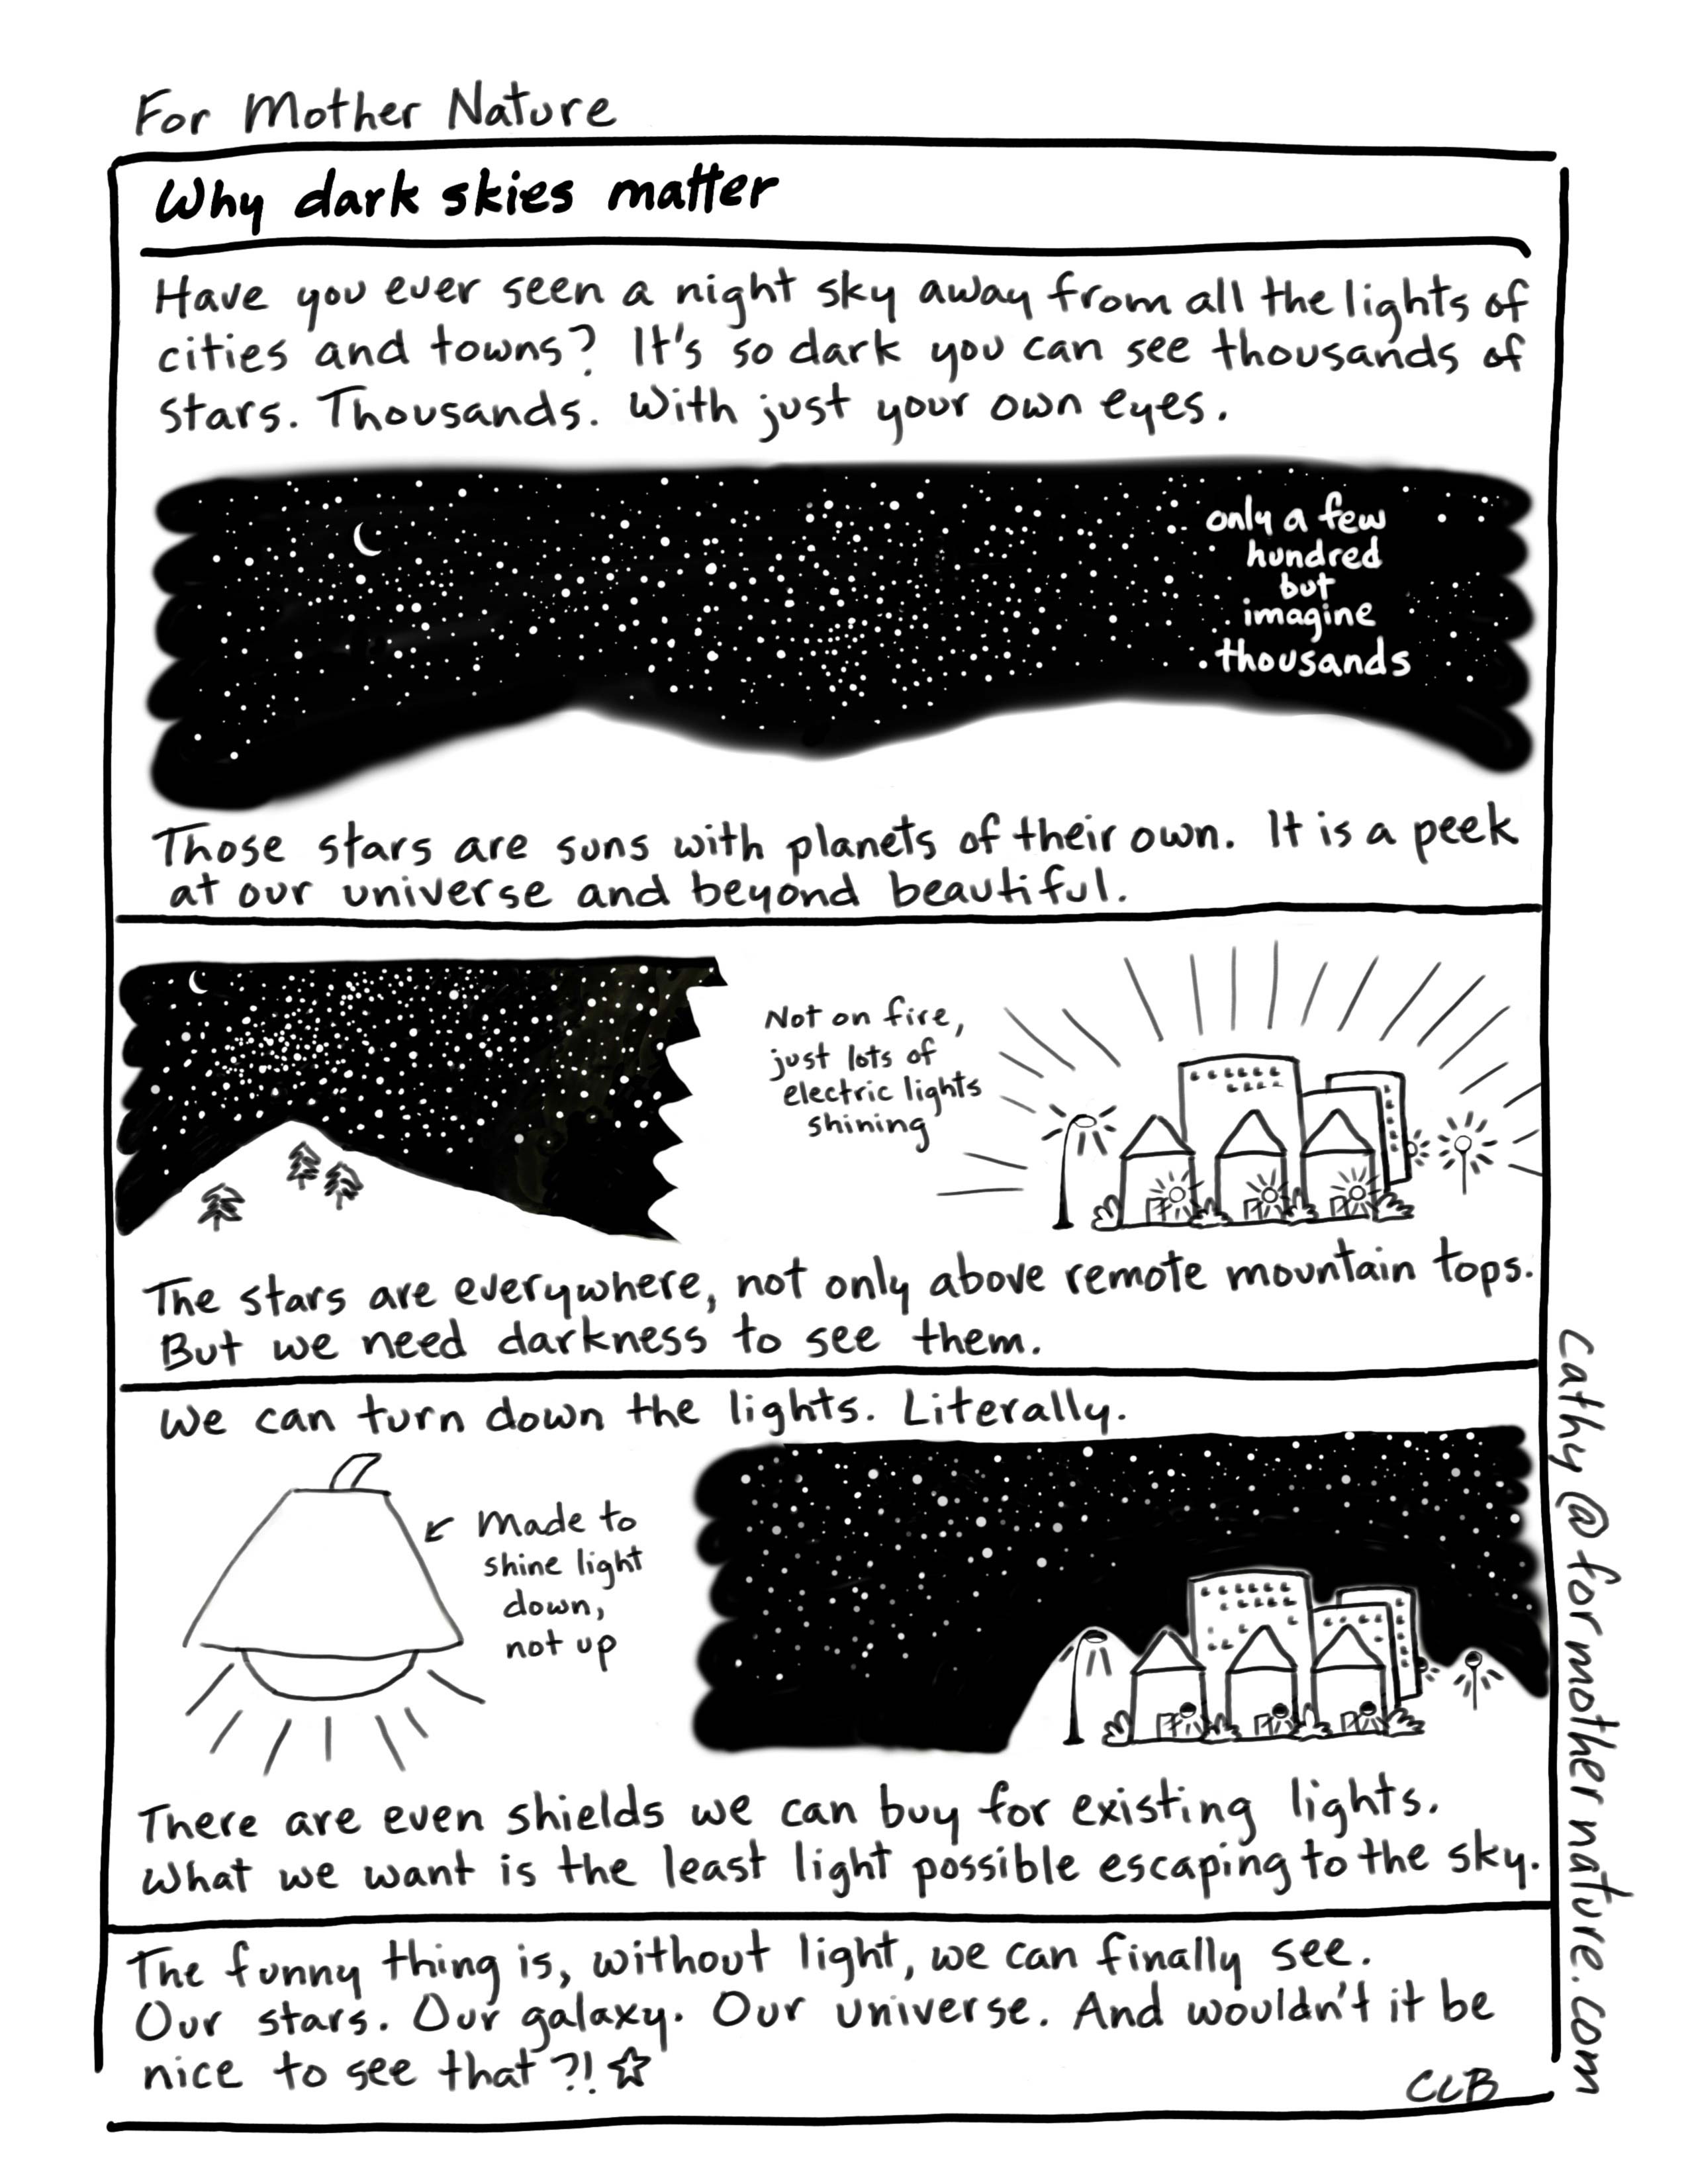 For Mother Nature
Why dark skies matter
Have you ever seen a night sky away from all the lights of
cities and towns? It's so dark you can see thousands of
stars. Thousands. With just your own eyes.
only a few
hundred
but
imagine
thousands
Those stars are suns with planets of their own. It is a peek
at our universe and beyond beautiful.
Not on fire,
just lots of
electric lights
shining
The stars are everywhere, not only above remote mountain tops.
But we need darkness to see them.
We can turn down the lights. Literally.
Made to
shine light
down,
not up
There are even shields we can buy for existing lights.
What we want is the least light possible escaping to the sky.
The funny thing is, without light, we can finally see.
Our stars. Our galaxy. Our universe. And wouldn't it be
nice to see that?!☆
CLB
cathy@formothernature.com